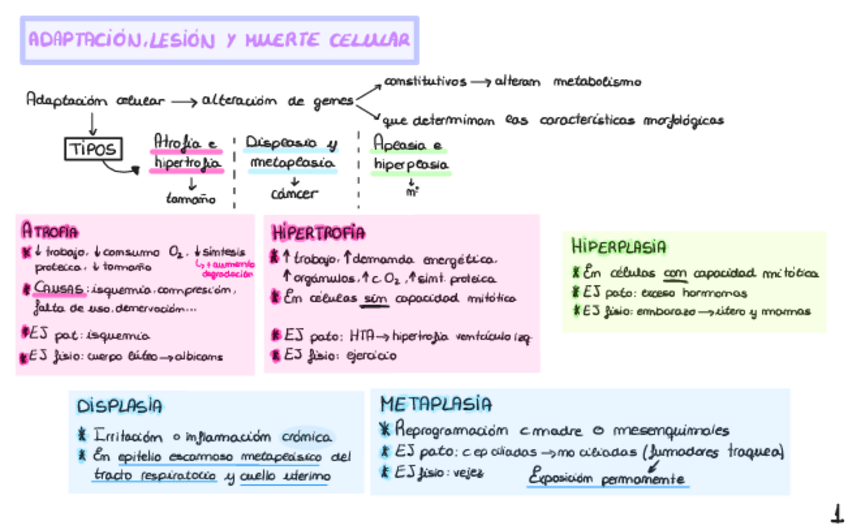 ADAPTACIÓN, LESIÓN Y MUERTE CELULAR
constitutivos → alteran metabolismo
Adaptación celular → alteración de genes
que determinan las características morfológicas
TIPOS
Atrofia e
hipertrofia
tamaño
Displasia y
metaplasia
cáncer
Aplasia e
hiperplasia
nº
ATROFIA
↓ trabajo, ↓ consumo O₂, ↓ síntesis
proteica, ↓ tamaño
↳ + aumento
degradación
CAUSAS: isquemia, compresión,
falta de uso, denervación...
EJ pat: isquemia
EJ fisio: cuerpo lúteo → albicans
HIPERTROFIA
↑ trabajo, ↑ demanda energética,
↑ orgánulos, ↑ c. O₂, ↑ sínt. proteica
En células sin capacidad mitótica
EJ pato: HTA → hipertrofia ventrículo izq
EJ fisio: ejercicio
HIPERPLASIA
En células con capacidad mitótica
EJ pato: exceso hormonas
EJ fisio: embarazo → útero y mamas
DISPLASIA
Irritación o inflamación crónica
En epitelio escamoso metaplásico del
tracto respiratorio y cuello uterino
METAPLASIA
Reprogramación c madre o mesenquimales
EJ pato: c ep ciliadas → no ciliadas (fumadores traquea)
EJ fisio: vejez
Exposición permanente
1